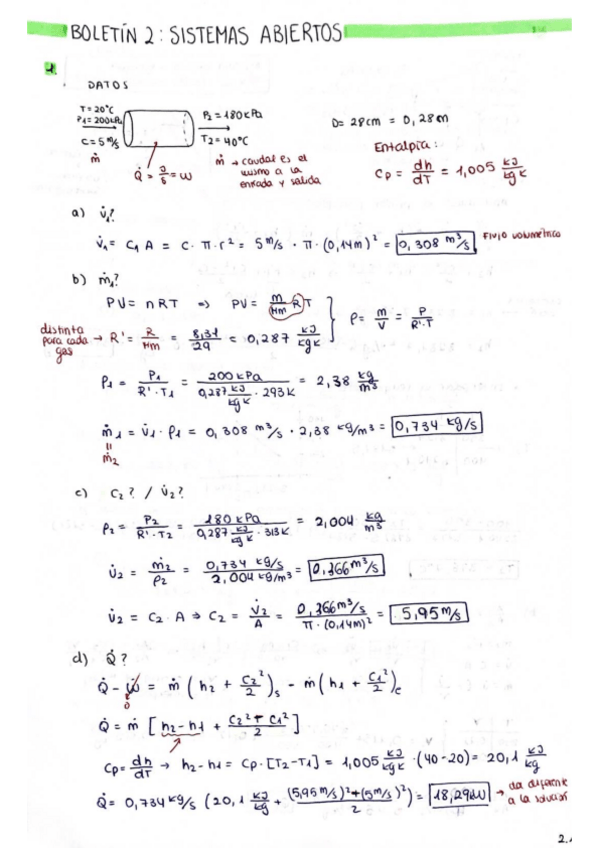 BOLETÍN 2: SISTEMAS ABIERTOS
1.
DATOS
T = 20°C
P1 = 200 kPa
C = 5 m/s
ṁ
Q̇ = J/s = W
P2 = 180 kPa
T2 = 40°C
ṁ → caudal es el
mismo a la
entrada y salida
D = 28cm = 0,28m
Entalpía:
Cp = dh/dT = 1,005 kJ/kg K
a) V̇1?
V̇1 = C1 A = C · π · r² = 5 m/s · π · (0,14m)² = 0,308 m³/s Flujo volumétrico
b) ṁ1?
PV = nRT ⇒ PV = m/Mm RT
ρ = m/V = P/R'·T
distinta
para cada
gas
→ R' = R/Mm = 8,31/29 = 0,287 kJ/kg K
ρ1 = P1/R'·T1 = 200 kPa / 0,287 kJ/kg K · 293K = 2,38 kg/m³
ṁ1 = V̇1 · ρ1 = 0,308 m³/s · 2,38 kg/m³ = 0,734 kg/s
=
ṁ2
c) C2? / V̇2?
ρ2 = P2/R'·T2 = 180 kPa / 0,287 kJ/kg K · 313K = 2,004 kg/m³
V̇2 = ṁ2/ρ2 = 0,734 kg/s / 2,004 kg/m³ = 0,366 m³/s
V̇2 = C2 · A ⇒ C2 = V̇2/A = 0,366 m³/s / π · (0,14m)² = 5,95 m/s
d) Q̇?
Q̇ - Ẇ = ṁ (h2 + C2²/2)s - ṁ (h1 + C1²/2)e
0
Q̇ = ṁ [h2 - h1 + C2² + C1²/2]
Cp = dh/dT → h2 - h1 = Cp · [T2 - T1] = 1,005 kJ/kg K · (40 - 20) = 20,1 kJ/kg
Q̇ = 0,734 kg/s (20,1 kJ/kg + (5,95 m/s)² + (5 m/s)²/2) = 18,29 kW → da diferente
a la solución
2.1